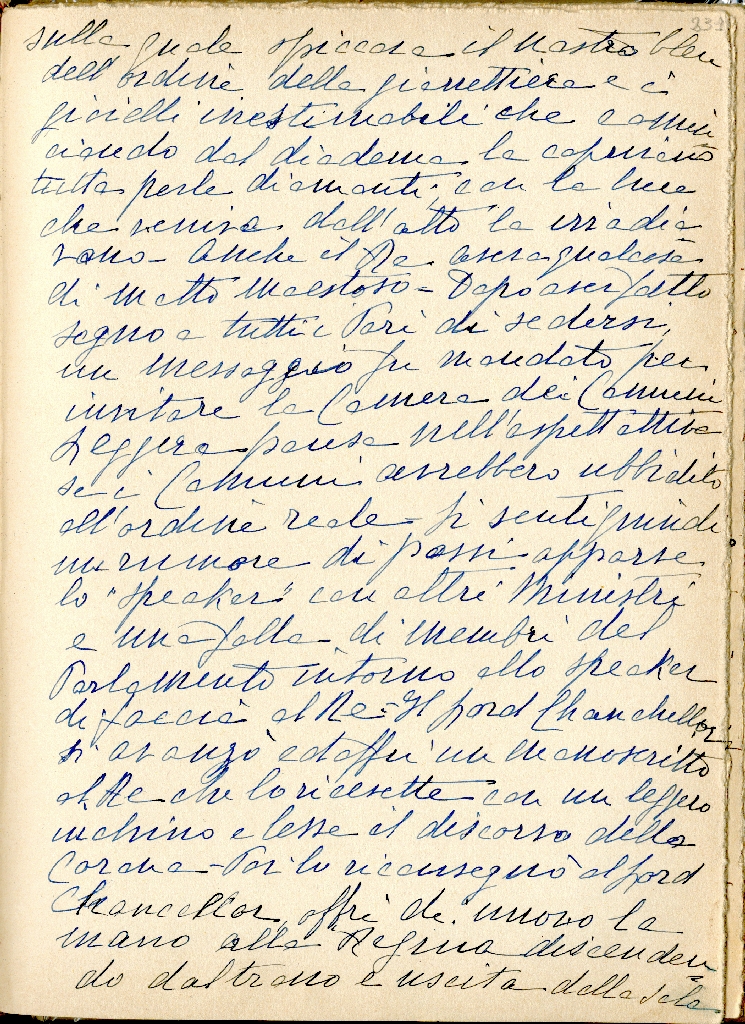 239
sulla quale spiccava il nastro bleu
dell'ordine della giarrettiera e i
gioielli inestimabili che comin
ciando dal diadema la coprivano
tutta perle diamanti; con la luce
che veniva dall'alto la irradia
vano - Anche il Re aveva qualcosa
di molto maestoso = Dopo aver fatto
segno a tutti i Pari di sedersi,
un messaggio fu mandato per
invitare la Camera dei Comuni
Leggera pausa nell'aspettattiva
se i Comuni avrebbero ubbidito
all'ordine reale - si sentì quindi
un rumore di passi apparve
lo "speaker" con altri Ministri
e una folla - di membri del
Parlamento intorno allo speaker
di faccia al Re - Il Lord Chanchellor
si avanzò ed offrì un manoscritto
al Re che lo ricevette con un leggero
inchino e lesse il discorso della
Corona - Poi lo riconsegnò al Lord
Chancellor, offrì di nuovo la
mano alla Regina discenden=
do dal trono e uscita dalla Sala